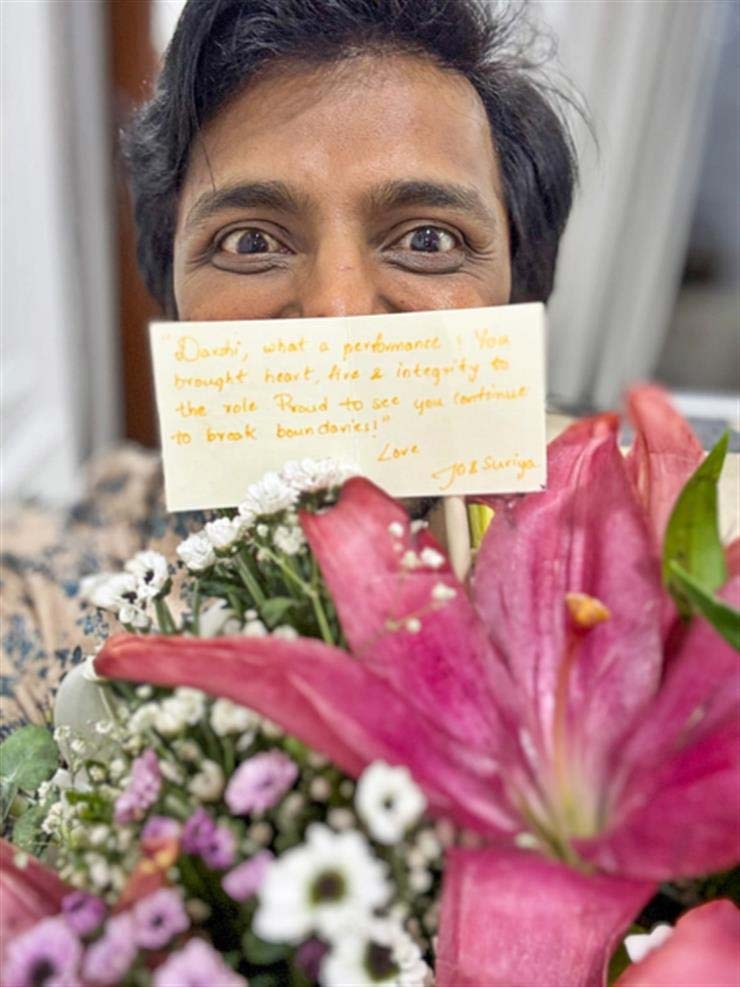 "Darshi, what a performance! You
brought heart, fire & integrity to
the role Proud to see you continue
to break boundaries!"
Love
Jo & Suriya